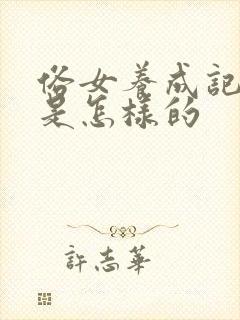 俗女養成記
是怎樣的
許志華